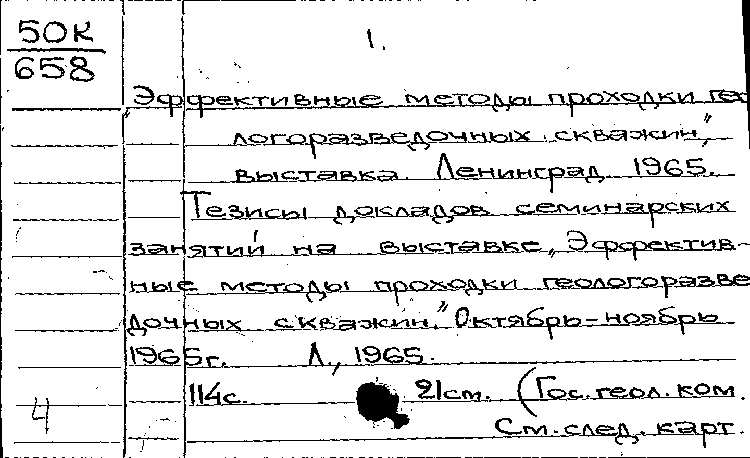 50К
658
1.
„Эффективные методы проходки гео
логоразведочных скважин,"
выставка. Ленинград 1965.
Тезисы докладов семинарских
занятий на выставке „Эффектив-
ные методы проходки геологоразве
дочных скважин." Октябрь-ноябрь
1965г. Л., 1965.
114с. 21см. (Гос. геол. ком.
См. след. карт.
4